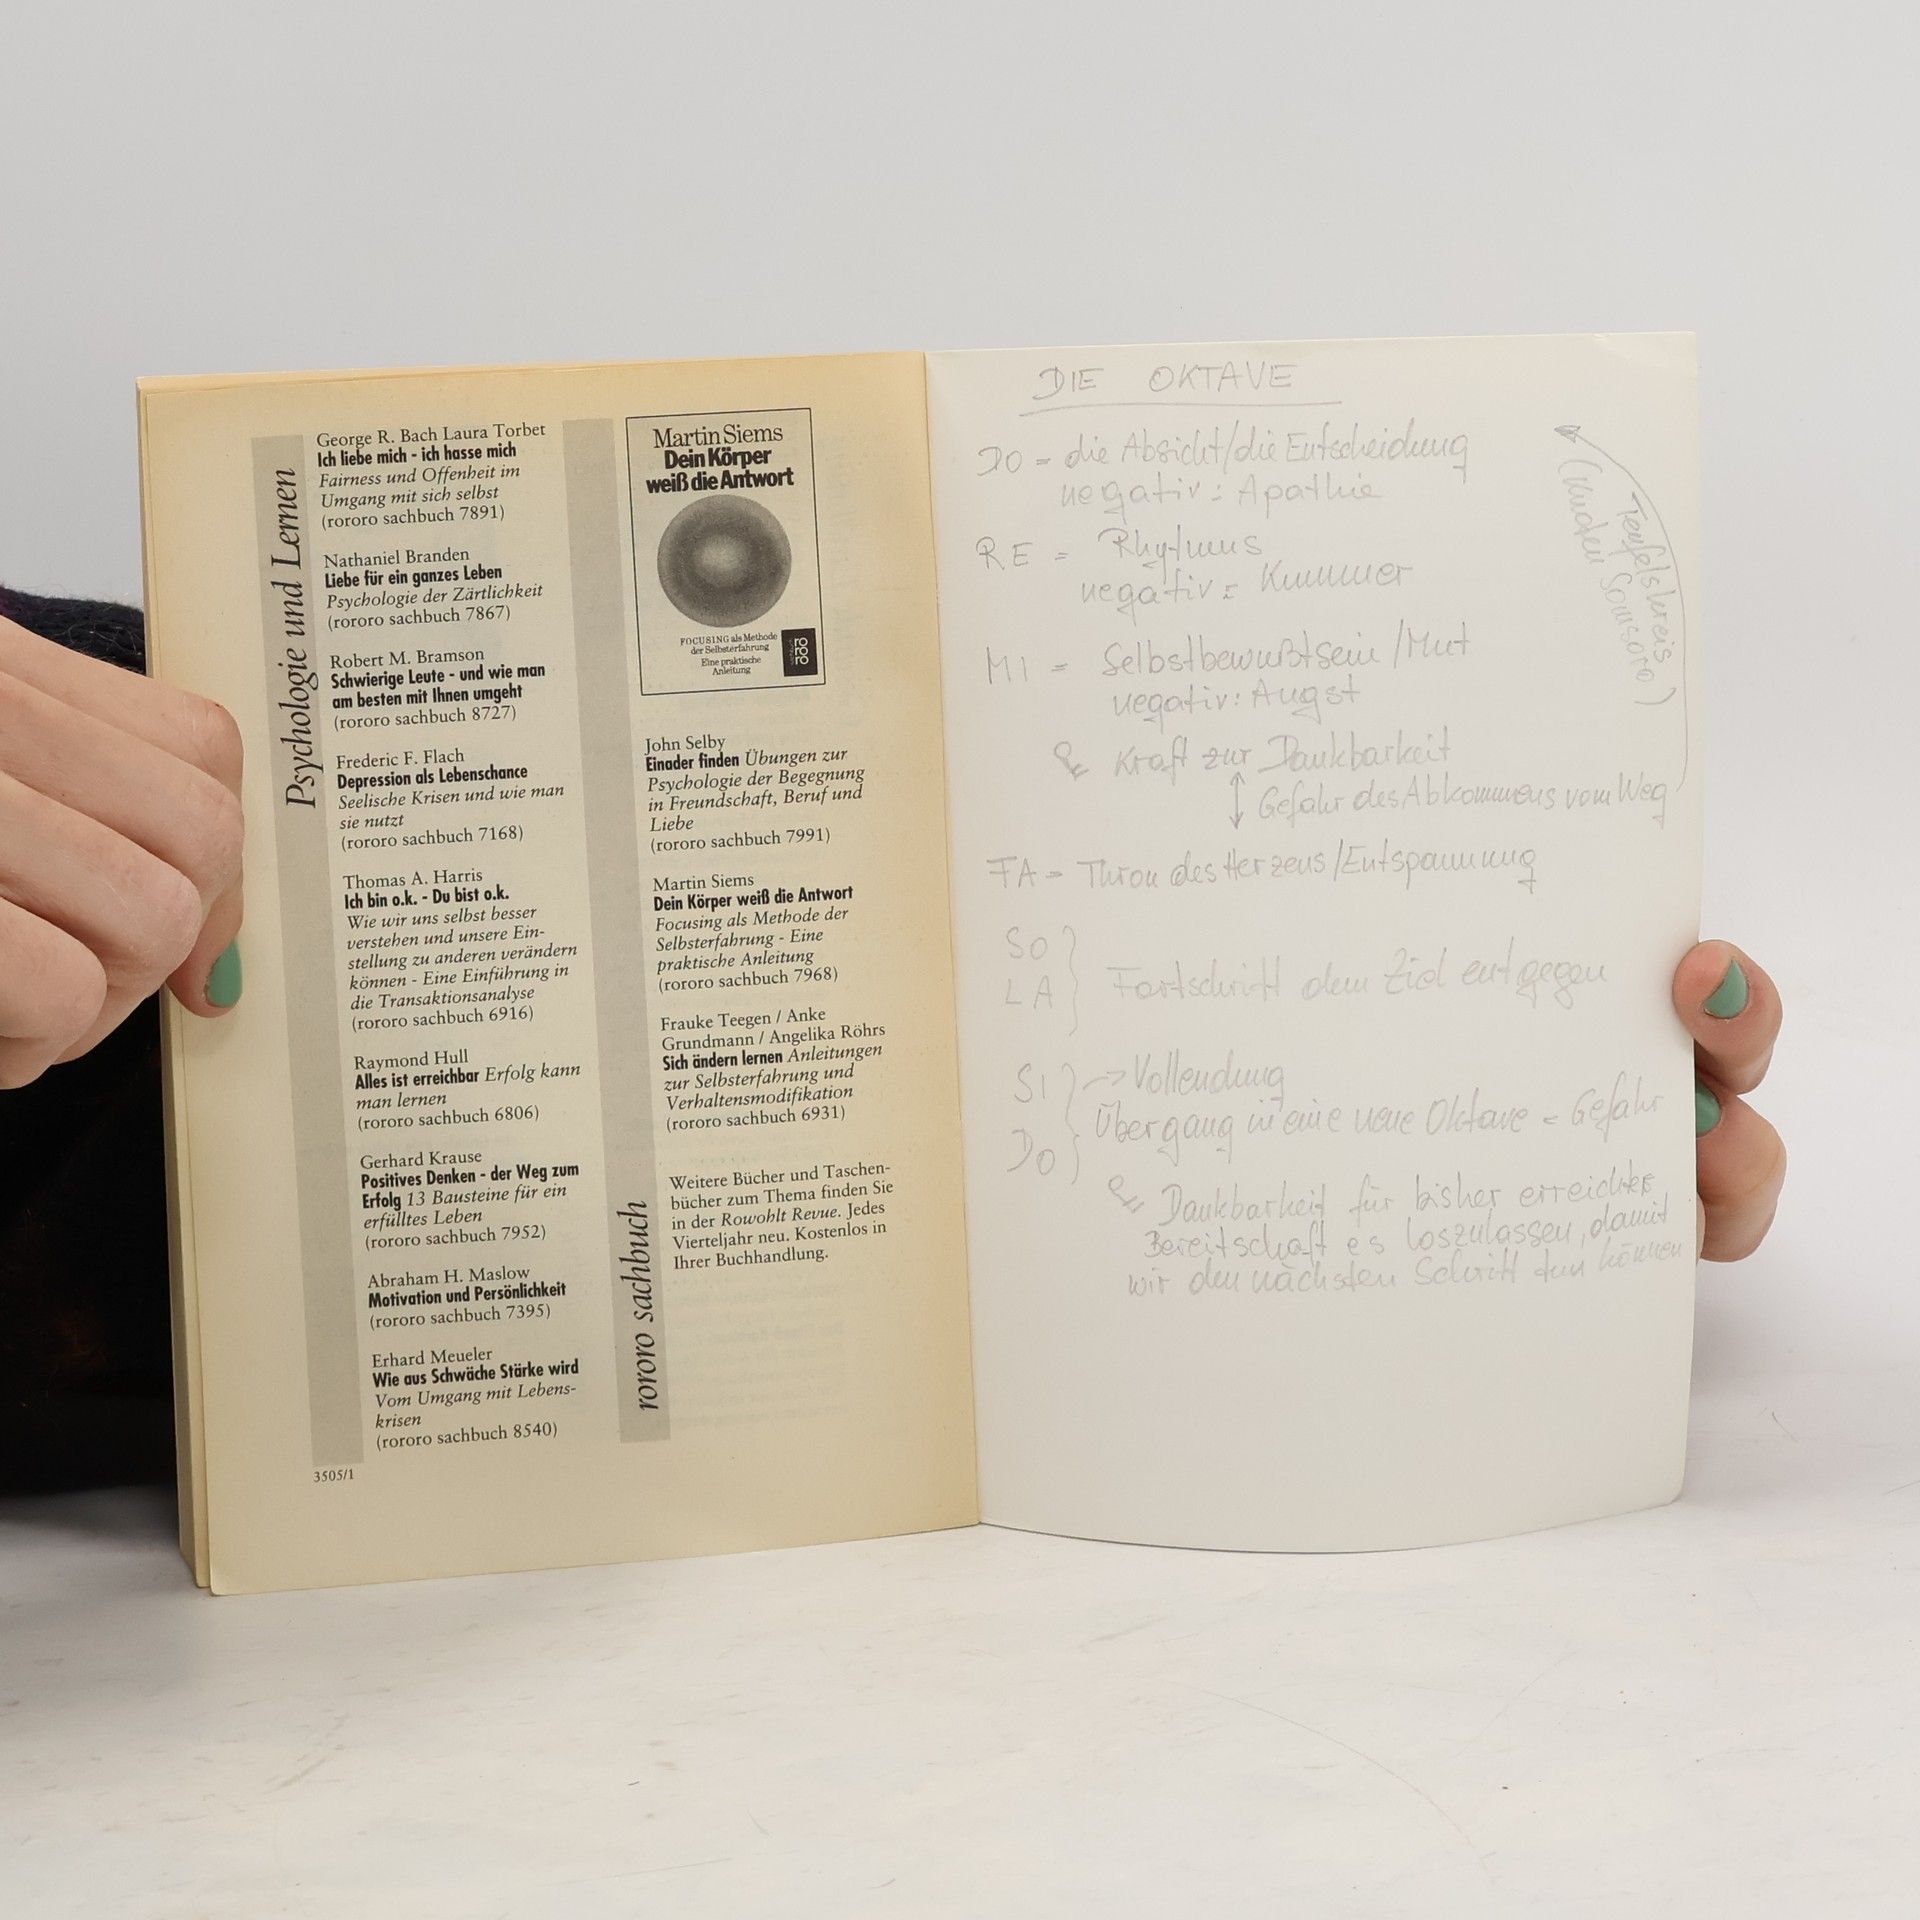 Psychologie und Lernen
George R. Bach Laura Torbet
Ich liebe mich - ich hasse mich
Fairness und Offenheit im
Umgang mit sich selbst
(rororo sachbuch 7891)
Nathaniel Branden
Liebe für ein ganzes Leben
Psychologie der Zärtlichkeit
(rororo sachbuch 7867)
Robert M. Bramson
Schwierige Leute - und wie man
am besten mit Ihnen umgeht
(rororo sachbuch 8727)
Frederic F. Flach
Depression als Lebenschance
Seelische Krisen und wie man
sie nutzt
(rororo sachbuch 7168)
Thomas A. Harris
Ich bin o.k. - Du bist o.k.
Wie wir uns selbst besser
verstehen und unsere Ein-
stellung zu anderen verändern
können - Eine Einführung in
die Transaktionsanalyse
(rororo sachbuch 6916)
Raymond Hull
Alles ist erreichbar Erfolg kann
man lernen
(rororo sachbuch 6806)
Gerhard Krause
Positives Denken - der Weg zum
Erfolg 13 Bausteine für ein
erfülltes Leben
(rororo sachbuch 7952)
Abraham H. Maslow
Motivation und Persönlichkeit
(rororo sachbuch 7395)
Erhard Meueler
Wie aus Schwäche Stärke wird
Vom Umgang mit Lebens-
krisen
(rororo sachbuch 8540)
3505/1
rororo sachbuch
Martin Siems
Dein Körper
weiß die Antwort
FOCUSING als Methode
der Selbsterfahrung
Eine praktische
Anleitung
ro
ro
ro
John Selby
Einader finden Übungen zur
Psychologie der Begegnung
in Freundschaft, Beruf und
Liebe
(rororo sachbuch 7991)
Martin Siems
Dein Körper weiß die Antwort
Focusing als Methode der
Selbsterfahrung - Eine
praktische Anleitung
(rororo sachbuch 7968)
Frauke Teegen / Anke
Grundmann / Angelika Röhrs
Sich ändern lernen Anleitungen
zur Selbsterfahrung und
Verhaltensmodifikation
(rororo sachbuch 6931)
Weitere Bücher und Taschen-
bücher zum Thema finden Sie
in der Rowohlt Revue. Jedes
Vierteljahr neu. Kostenlos in
Ihrer Buchhandlung.
DIE OKTAVE
DO = die Absicht/die Entscheidung
negativ: Apathie
RE = Rhytmus
negativ: Kummer
MI = Selbstbewußtsein/Mut
negativ: Angst
Kraft zur Dankbarkeit
Gefahr des Abkommens vom Weg
Teufelskreis
FA = Thron des Herzens/Entspannung
SO
LA
Fortschritt dem Ziel entgegen
SI → Vollendung
Übergang in eine neue Oktave = Gefahr
DO
Dankbarkeit für bisher erreichtes
Bereitschaft es loszulassen, damit
wir den nächsten Schritt tun können